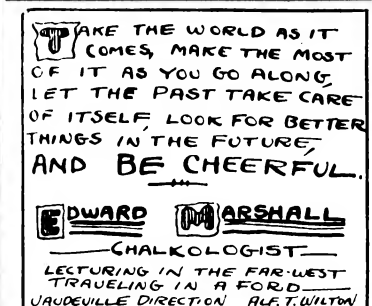 TAKE THE WORLD AS IT
COMES, MAKE THE MOST
OF IT AS YOU GO ALONG,
LET THE PAST TAKE CARE
OF ITSELF, LOOK FOR BETTER
THINGS IN THE FUTURE,
AND BE CHEERFUL.
EDWARD MARSHALL
CHALKOLOGIST
LECTURING IN THE FAR-WEST
TRAVELING IN A FORD
VAUDEVILLE DIRECTION ALF. T. WILTON